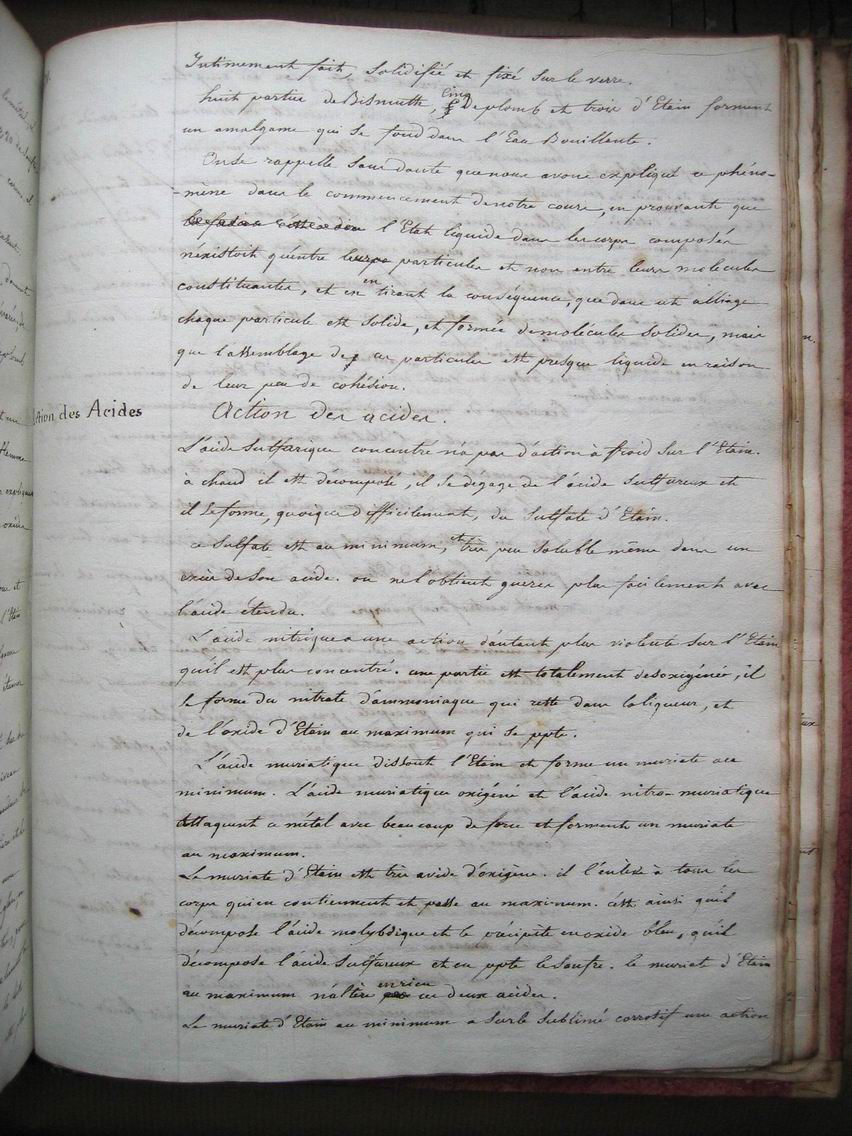 Intimement fait, Solidifié et fixé Sur le verre.
huit partie de Bismuthe, Cinq De plomb et trois d'Etain forment
un amalgame qui Se fond dans l'Eau Bouillente.
On se rappelle Sans doute que nous avons expliqué ce phéno-
-mène dans le commencement de notre cours, en prouvant que
l'Etat liquide dans les corps composés
n'éxistoit qu'entre leurs particules et non entre leurs molecules
constituantes, et en en tirant la conséquence, que dans un alliage
chaque particule est Solide, et formée de molécules Solides, mais
que l'assemblage de ces particules est presque liquide en raison
de leur peu de cohésion.
Action des Acides
Action des acides.
L'acide Sulfurique concentré n'a pas d'action à froid Sur l'Etain.
à chaud il est décomposé, il Se degage de l'acide Sulfureux et
il Se forme, quoique difficilement, du Sulfate d'Etain.
ce Sulfate est au minimum, et très peu Soluble même dans un
excès de Son acide. on ne l'obtient gueres plus facilement avec
l'acide étendu.
L'acide nitrique a une action d'autant plus violente Sur l'Etain
qu'il est plus concentré. une partie est totalement desoxigénée, il
Se forme du nitrate d'ammoniaque qui reste dans la liqueur, et
de l'oxide d'Etain au maximum qui Se ppte.
L'acide muriatique dissout l'Etain et forme un muriate au
minimum. L'acide muriatique oxigéné et l'acide nitro-muriatique
attaquent ce métal avec beaucoup de force et forment un muriate
au maximum.
Le muriate d'Etain est très avide d'oxigène. il l'enlève à tous les
corps qui en contiennent et passe au maximum. c'est ainsi qu'il
décompose l'acide molybdique et le précipite en oxide bleu, qu'il
décompose l'acide Sulfureux et en ppte le Soufre. le muriate d'Etain
au maximum n'altère en rien ces deux acides.
Le muriate d'Etain au minimum a Sur le Sublimé corrosif une action